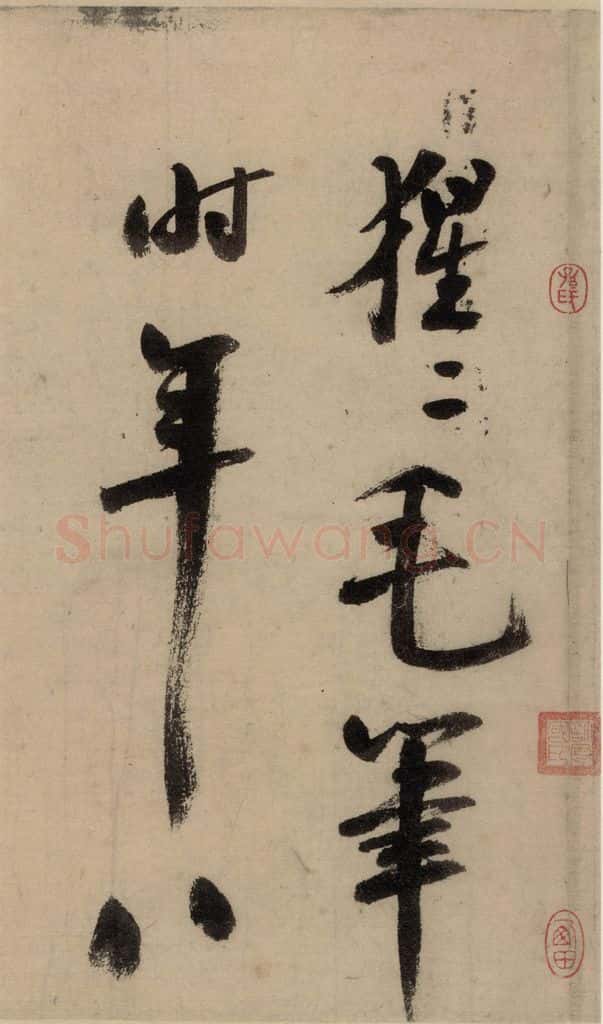 猩〻毛筆
时年八
Shufawang.CN